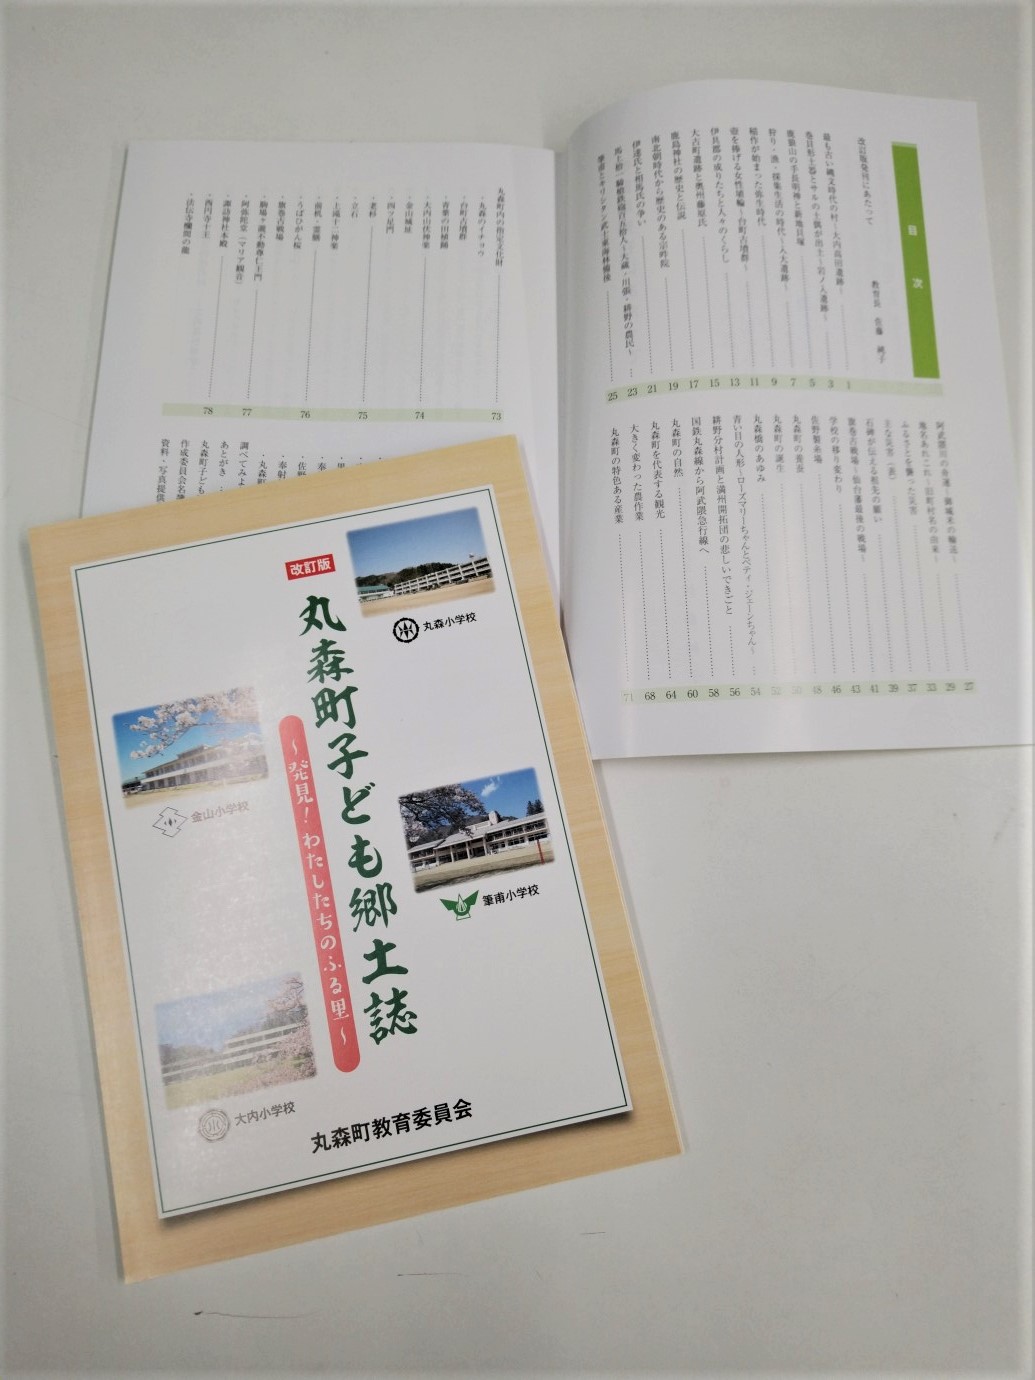 目次
改訂版発刊にあたって
教育長 佐藤 純子
最も古い縄文時代の村～大内高田遺跡～ 1
巻貝形土器とサルの土偶が出土～岩ノ入遺跡～ 3
鹿狼山の手長明神と新地貝塚 5
狩り・漁・採集生活の時代～入大遺跡～ 7
稲作が始まった弥生時代 9
壺を捧げる女性埴輪～台町古墳群～ 11
伊具郡の成りたちと人々のくらし 13
大古町遺跡と奥州藤原氏 15
鹿島神社の歴史と伝説 17
南北朝時代から歴史のある宗吽院 19
伊達氏と相馬氏の争い 21
馬上拾一騎槍鉄砲百五拾人～大蔵・川張・耕野の農民～ 23
筆甫とキリシタン武士東海林備後 25
阿武隈川の舟運～御城米の輸送～ 27
地名あれこれ～旧町村名の由来～ 29
ふるさとを襲った災害 33
主な災害（表） 37
石碑が伝える祖先の願い 39
旗巻古戦場～仙台藩最後の戦場～ 41
学校の移り変わり 43
佐野製糸場 46
丸森町の養蚕 48
丸森町の誕生 50
丸森橋のあゆみ 52
青い目の人形～ローズマリーちゃんとベティ・ジェーンちゃん～ 54
耕野分村計画と満州開拓団の悲しいできごと 56
国鉄丸森線から阿武隈急行線へ 58
丸森町の自然 60
丸森町を代表する観光 64
大きく変わった農作業 68
丸森町の特色ある産業 71
丸森町内の指定文化財 73
・丸森のイチョウ
・台町古墳群
・青葉の田植踊
・大内山伏神楽 74
・金山城址
・四ツ足門
・老杉 75
・立石
・土滝十二神楽
・面机・霊膳 76
・うばひがん桜
・旗巻古戦場
・駒場ヶ滝不動尊仁王門 77
・阿弥陀堂（マリア観音）
・諏訪神社本殿
・西円寺十王 78
・法伝寺欄間の龍
調べてみよ
あとがき
丸森町子ども
作成委員会名簿
資料・写真提供
改訂版
丸森町子ども郷土誌
～発見！わたしたちのふる里～
丸森小学校
金山小学校
筆甫小学校
大内小学校
丸森町教育委員会